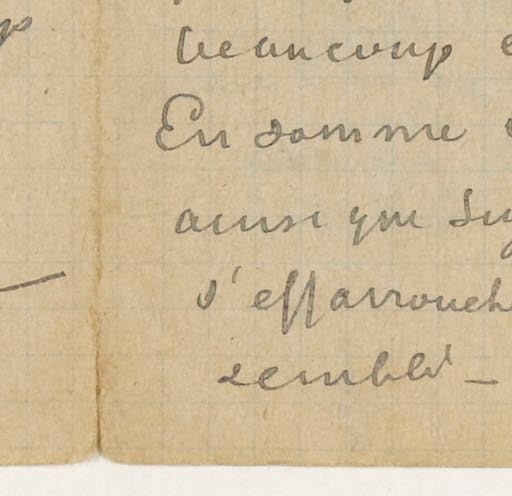 beaucoup
En somme
ainsi que
s'effarrouch
semblé –